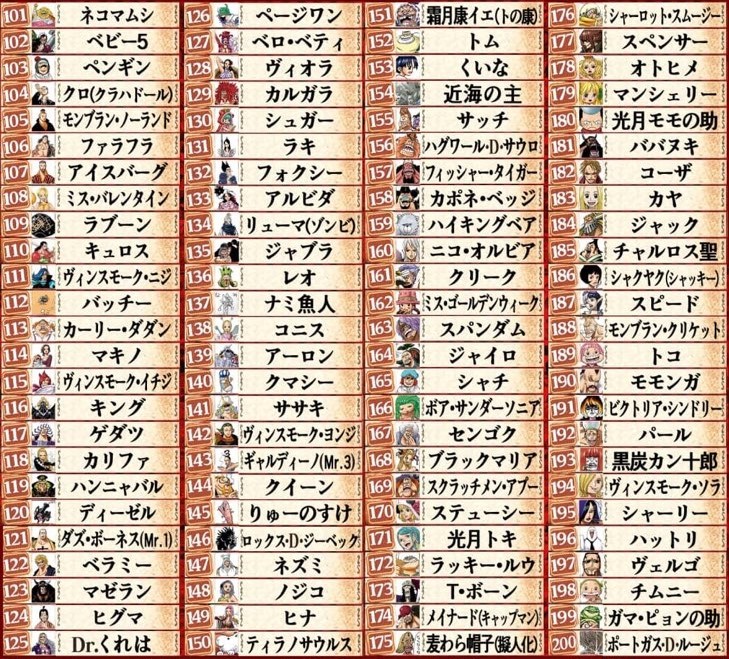 101 ネコマムシ
102 ベビー5
103 ペンギン
104 クロ(クラハドール)
105 モンブラン・ノーランド
106 ファラフラ
107 アイスバーグ
108 ミス・バレンタイン
109 ラブーン
110 キュロス
111 ヴィンスモーク・ニジ
112 バッチー
113 カーリー・ダダン
114 マキノ
115 ヴィンスモーク・イチジ
116 キング
117 ゲダツ
118 カリファ
119 ハンニャバル
120 ディーゼル
121 ダズ・ボーネス(Mr.1)
122 ベラミー
123 マゼラン
124 ヒグマ
125 Dr.くれは
126 ページワン
127 ベロ・ベティ
128 ヴィオラ
129 カルガラ
130 シュガー
131 ラキ
132 フォクシー
133 アルビダ
134 リューマ(ゾンビ)
135 ジャブラ
136 レオ
137 ナミ魚人
138 コニス
139 アーロン
140 クマシー
141 ササキ
142 ヴィンスモーク・ヨンジ
143 ギャルディーノ(Mr.3)
144 クイーン
145 りゅーのすけ
146 ロックス・D・ジーベック
147 ネズミ
148 ノジコ
149 ヒナ
150 ティラノサウルス
151 霜月康イエ(トの康)
152 トム
153 くいな
154 近海の主
155 サッチ
156 ハグワール・D・サウロ
157 フィッシャー・タイガー
158 カポネ・ベッジ
159 ハイキングベア
160 ニコ・オルビア
161 クリーク
162 ミス・ゴールデンウィーク
163 スパンダム
164 ジャイロ
165 シャチ
166 ボア・サンダーソニア
167 センゴク
168 ブラックマリア
169 スクラッチメン・アプー
170 ステューシー
171 光月トキ
172 ラッキー・ルウ
173 T・ボーン
174 メイナード(キャップマン)
175 麦わら帽子(擬人化)
176 シャーロット・スムージー
177 スペンサー
178 オトヒメ
179 マンシェリー
180 光月モモの助
181 ババヌキ
182 コーザ
183 カヤ
184 ジャック
185 チャルロス聖
186 シャクヤク(シャッキー)
187 スピード
188 モンブラン・クリケット
189 トコ
190 モモンガ
191 ビクトリア・シンドリー
192 パール
193 黒炭カン十郎
194 ヴィンスモーク・ソラ
195 シャーリー
196 ハットリ
197 ヴェルゴ
198 チムニー
199 ガマ・ピョンの助
200 ポートガス・D・ルージュ